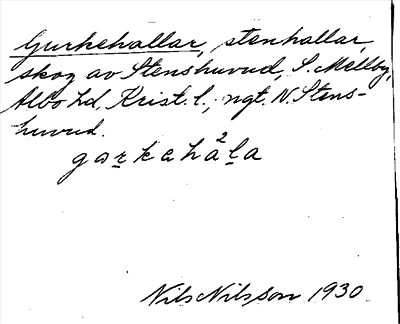 Gurkehallar, stenhallar,
skog av Stenshuvud, S. Mellby,
Albo hd, Krist. l., ngt. N. Stens-
huvud.
garkahä²la
Nils Nilsson 1930